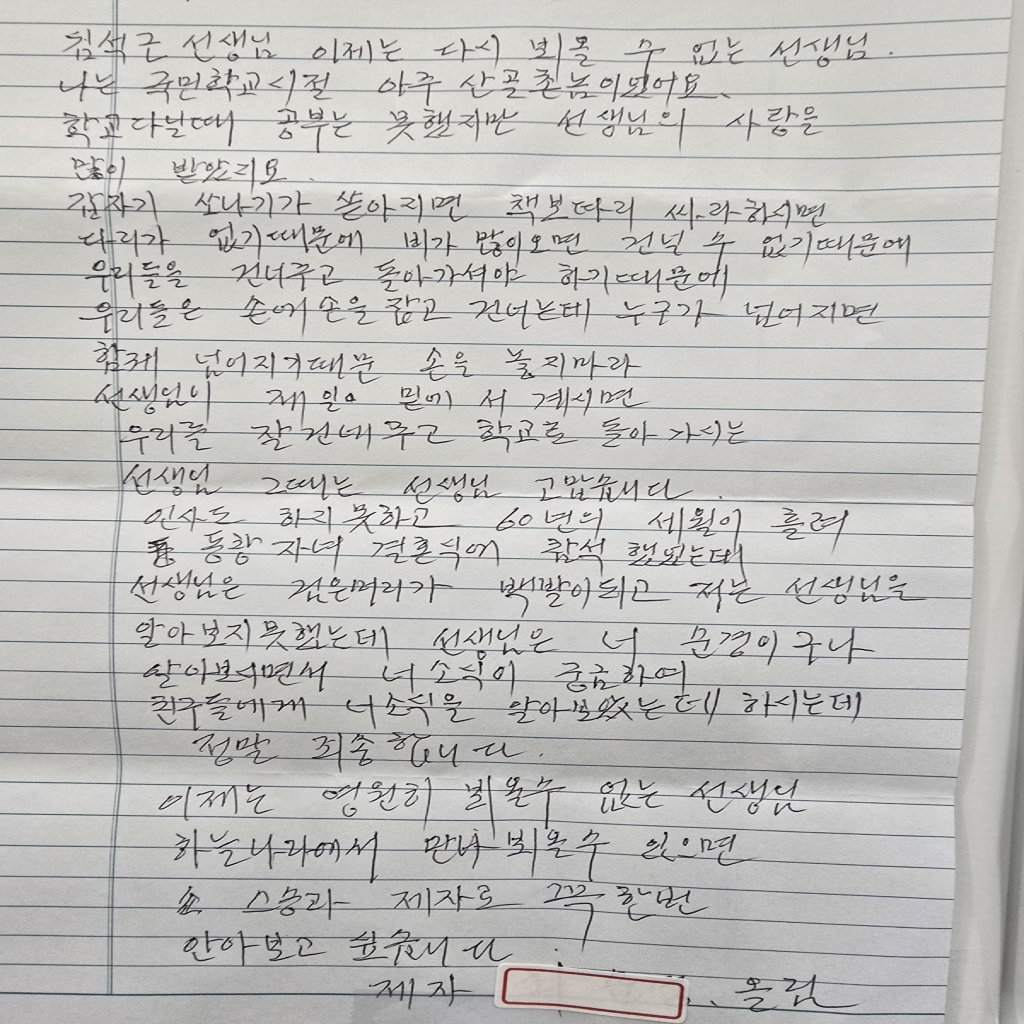 침석근 선생님 이제는 다시 뵈올 수 없는 선생님.
나는 국민학교시절 아주 산골촌놈이였어요.
학교다닐때 공부는 못했지만 선생님의 사랑을
많이 받았지요.
갑자기 쏘나기가 쏟아지면 책보따리 싸라하시면
다리가 없기때문에 비가 많이오면 건널 수 없기때문에
우리들을 건너주고 돌아가셔야 하기때문에
우리들은 손에손을 잡고 건너는데 누군가 넘어지면
함께 넘어지기때문 손을 놓지마라
선생님이 제일 밑에 서 계시면
우리를 잘건네주고 학교로 돌아가시는
선생님 그때는 선생님 고맙습니다.
인사도 하지못하고 60년의 세월이 흘려
동창 자녀 결혼식에 참석 했었는데
선생님은 검은머리가 백발이되고 저는 선생님을
알아보지못했는데 선생님은 너 문경이구나
알아보시면서 너소식이 궁금하여
친구들에게 너소식을 알아보았는데 하시는데
정말 죄송합니다.
이제는 영원히 뵈올수 없는 선생님
하늘나라에서 만나 뵈올수 있으면
스승과 제자로 꼭한번
안아보고 싶습니다.
제자 올림